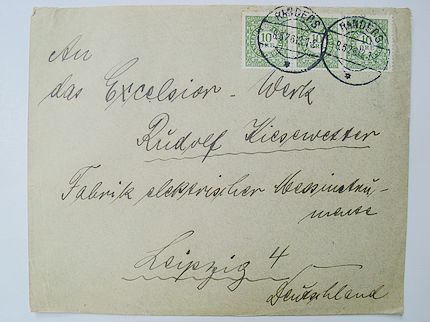 RANDERS
RANDERS
10
10
An
das Excelsior-Werk
Rudolf Kiesewetter
Fabrik elektrischer Messinstru-
mente
Leipzig 4
Deutschland